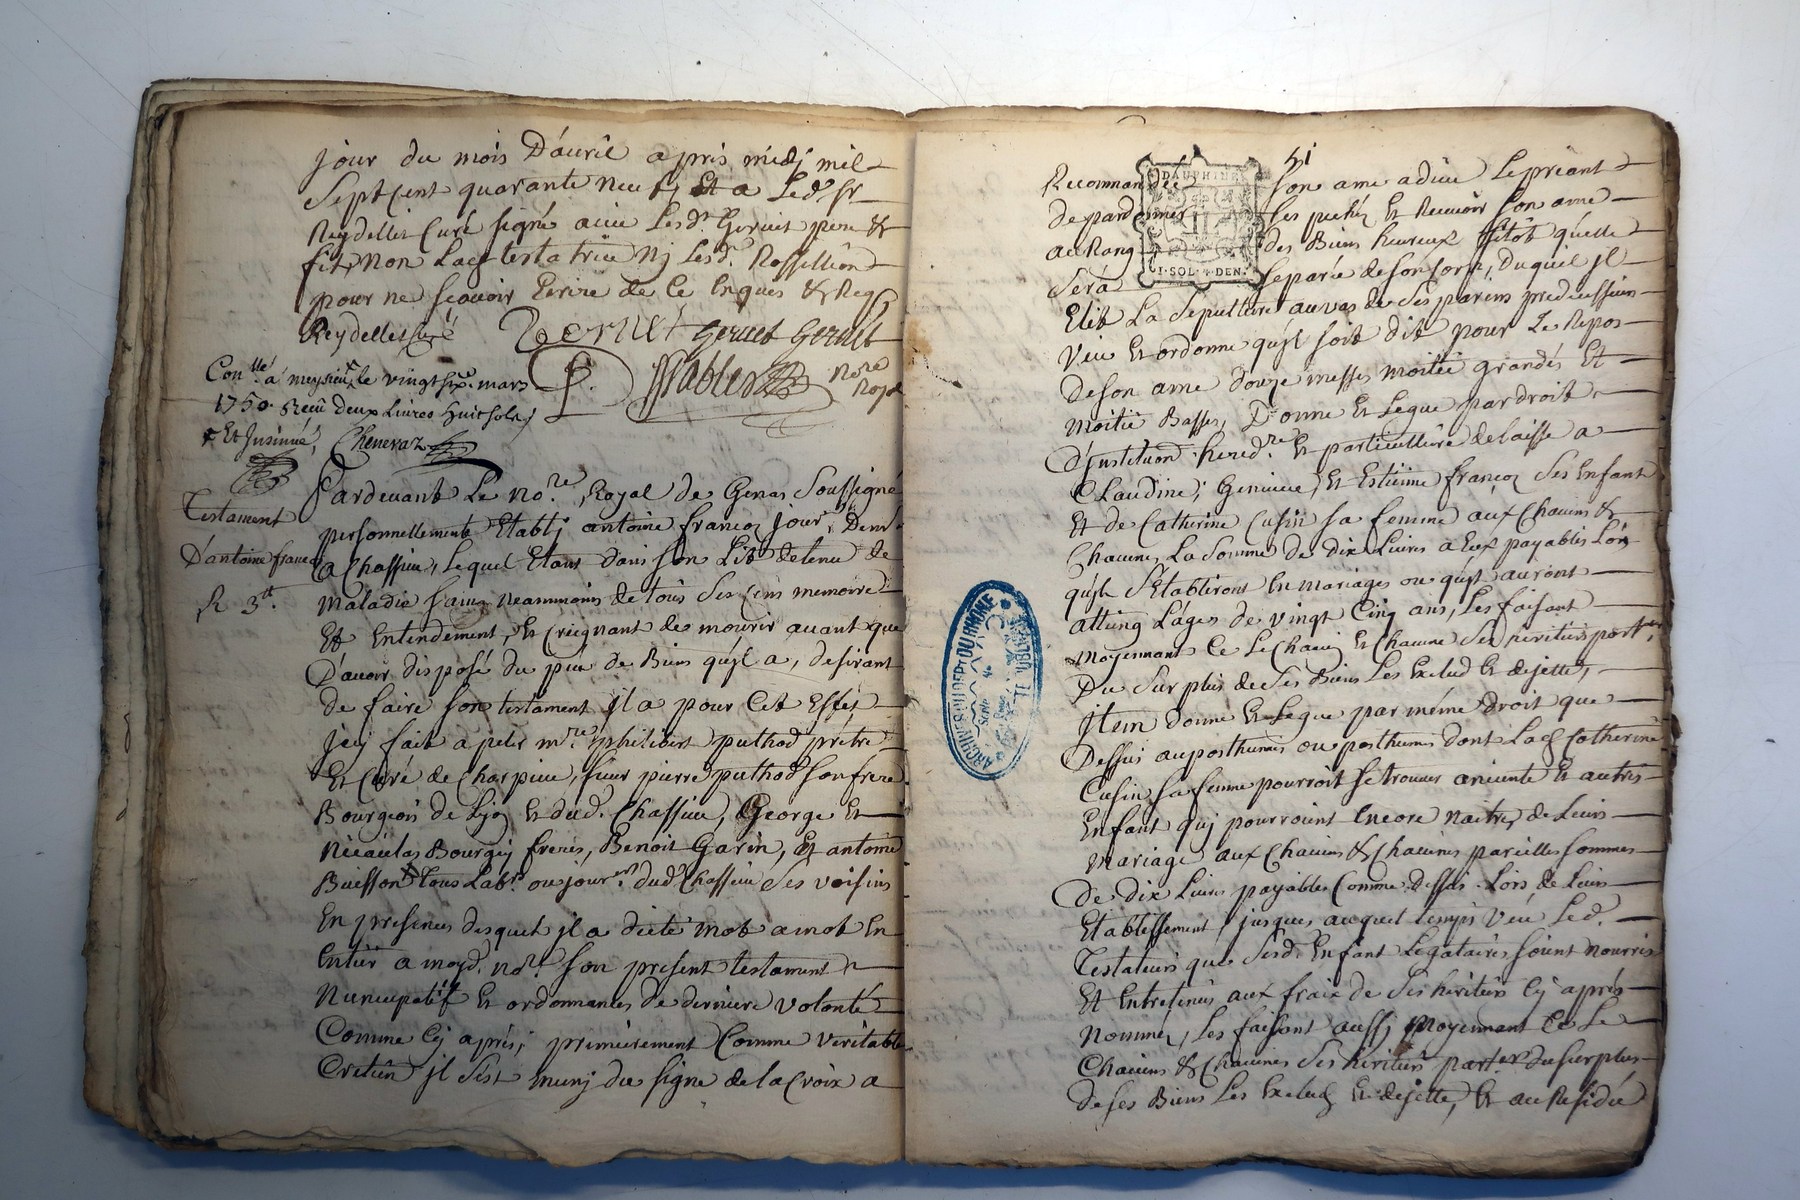 jour du mois D'auril apris midj mil
Sept Cent quarante neuf, Et a Led. Sr
Reydellet Curé signé auec Lesd. Geruet pere &
fils, non Lad. testatrice Nj Lesd. Rossillion
pour ne scauoir Ecrire de Ce Enquis & Reqs
Reydellet Curé Geruet Geruet
Sablier Nore Royl
Conllé á meysieux le vingt six mars
1750 Receu deux Liures huit sols
& Et Insinué, Chenevaz
Testament
D'antoine francoz
R 3tt.
Pardeuant Le nore. Royal de Genas Soussigné
personnellement Etablj antoine francoz jour. Demt.
a Chassieu, Lequel Etant dans son Lit detenu de
Maladie sain Neanmoins de tous ses sens memoire
Et Entendement, Et Creignant de mourir auant que
D'auoir disposé du peu de Biens qu'jl a, desirant
de faire son testament jl a pour Cet Effet
jcy fait apeler mre. philibert puthod prêtre
Et Curé de Charpieu, sieur pierre puthod son frere
Bourgeois de Lyon Et dud. Chassieu, George Et
Nicaulas Bourgey freres, Benoit Garin, Et antoine
Buisson tous Labrs. ou jour. dud. Chassieu ses voisins
En presences desquels jl a dicté mot a mot En
Entier a moyd. nore. son present testament
Nuncupatif Et ordonnances de derniere volonté
Comme Cy aprés; premierement Comme veritable
Cretien jl s'est munj du signe de la Croix a
41
DAUPHINE
1·SOL·4·DEN.
Recommandée son ame a dieu Le priant
de pardonner ses pechéz Et Receuoir son ame
au Rang des Biens heureux sitôt qu'elle
Sera separée de son Corps, Duquel jl
Elit La Sepulture au vas de ses parens predecesseurs
Veu Et ordonne qu'jl soit dit pour Le Repos
De son ame douze messes moitié grandes Et
moitié Basses, Donne Et Legue par droit
D'jnstitution hered.re Et particulliere delaisse a
Claudine, Geniueue, Et Estienne francoz ses Enfant
Et de Catherine Cusin sa femme aux Chacuns &
Chacunes La Somme de dix Liures a Eux payables Lors
qu'jls S'Etablirons En mariages ou qu'jls auront
atteing L'ages de vingt Cinq ans, Les faisant
Moyennant Ce Le Chacun Et Chacune ses heritiers part.ers
Du surplus de ses Biens Les Exclud Et dejette,
jtem donne Et Legue par méme droit que
Dessus au posthumes ou posthumes dont Lad. Catherine
Cusin sa femme pourroit se trouuer enceinte Et autres
Enfant quj pourroient Encore naitres de Leurs
Mariage aux Chacuns & Chacunes pareilles sommes
De dix Liures payables Comme Dessus Lors de Leurs
Etablissement jusques auquel temps Veu Led.
Testateurs que sesd. Enfant Legataires soient nourris
Et Entretenus aux fraix de ses heritiers Cy aprés
Nommés, Les faisant aussj Moyennant Ce Le
Chacuns & Chacunes ses heritiers part.ers du surplus
de ses Biens Les Exclud Et dejette, Et au Residu